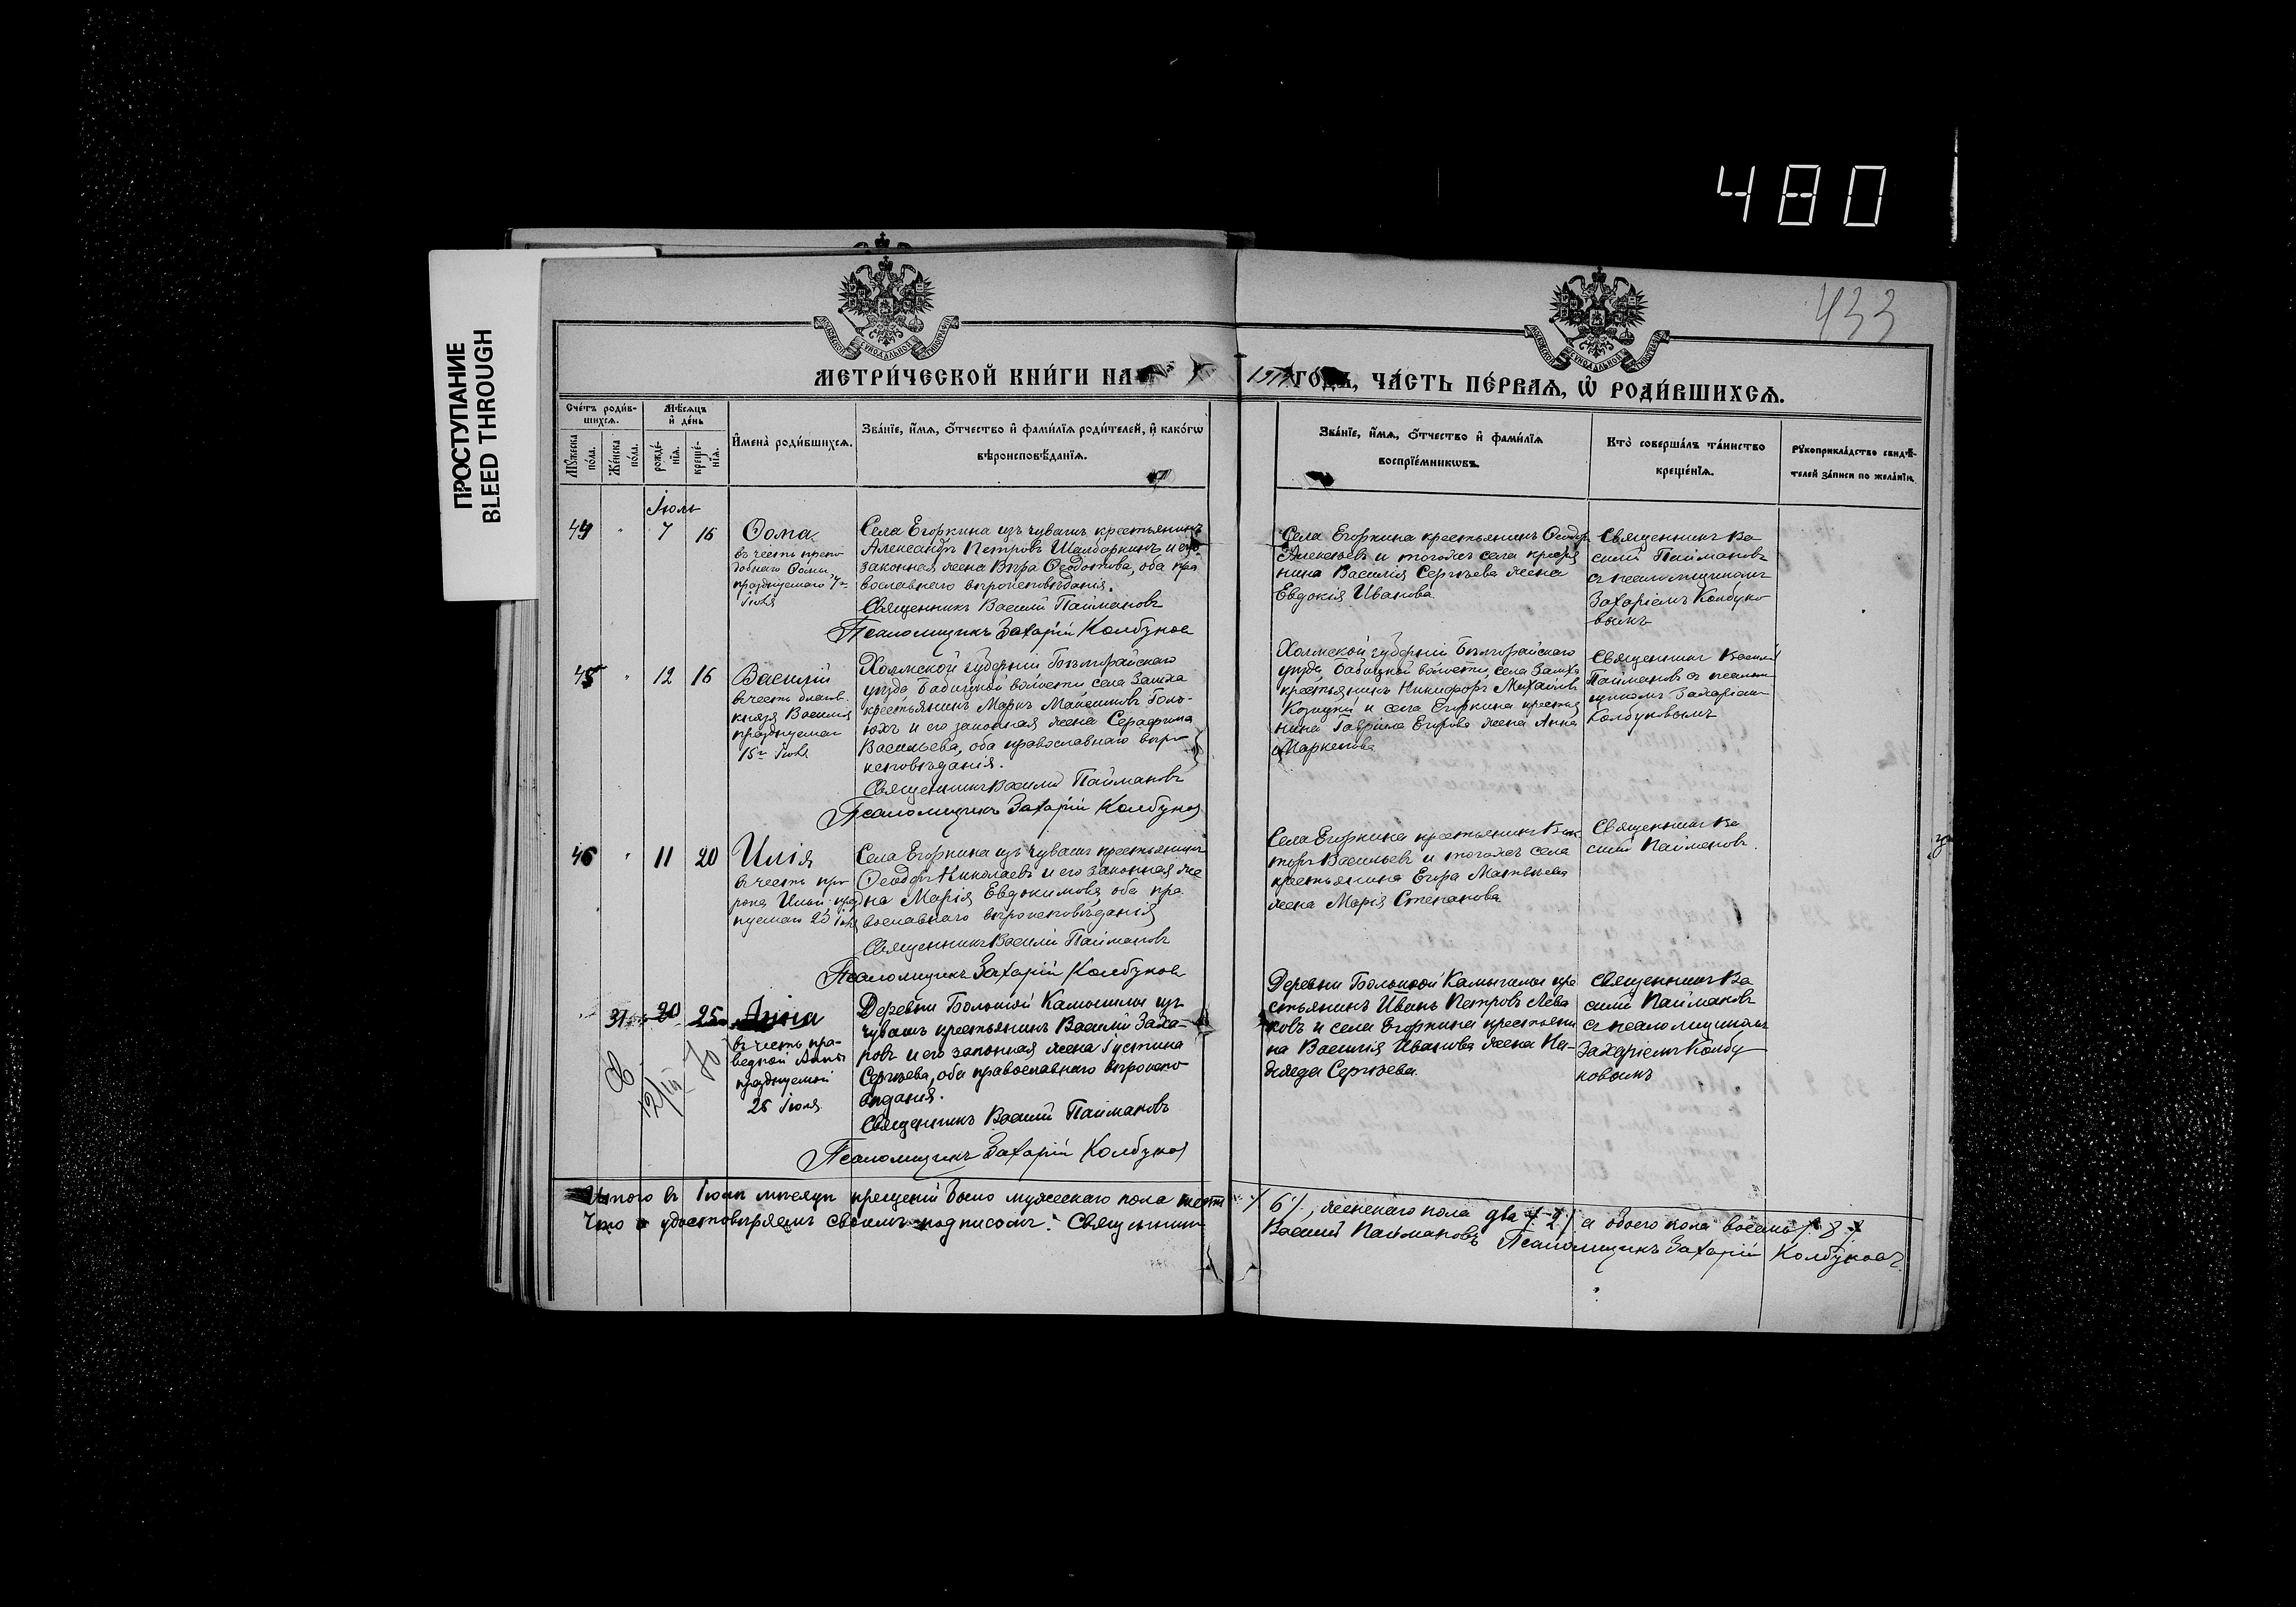 480
ПРОСТУПАНИЕ
BLEED THROUGH
433
МЕТРИ́ЧЕСКОЙ КНИ́ГИ НА
ГОДЪ, ЧА́СТЬ ПЕ́РВАѦ, Ѽ РОДИ́ВШИХСѦ.
Сче́тъ роди́в-
шихсѧ.
Мѣ́сѧцъ
и҆ де́нь
Мꙋ́жеска
по́ла.
Же́нска
по́ла.
рожде́-
нїѧ.
креще́-
нїѧ.
И҆мена̀ роди́вшихсѧ.
Зва́нїе, и҆́мѧ, ѻ҆́тчество и҆ фами́лїѧ роди́телей, и҆ како́гѡ
вѣроисповѣ́данїѧ.
Зва́нїе, и҆́мѧ, ѻ҆́тчество и҆ фами́лїѧ
воспрїе́мникѡвъ.
Кто̀ соверша́лъ та́инство
креще́нїѧ.
Рꙋкоприкла́дство свидѣ́-
телей за́писи по жела́нїю.
Іюль
44 " 7 16
Ѳома
въ честь препо
добнаго Ѳомы
празднуемаго 7го
Іюля
Села Егоркина изъ чувашъ крестьянинъ
Александръ Петровъ Шалдаркинъ и его
законная жена Вѣра Ѳедотова, оба пра
вославнаго вѣроисповѣданія.
Священникъ Василій Паймановъ
Псаломщикъ Захарій Колбуков
Села Егоркина крестьянинъ Ѳеодоръ
Алексѣевъ и тогожъ села крестья
нина Василія Сергѣева жена
Евдокія Иванова
Священникъ Ва
силій Паймановъ
съ псаломщикомъ
Захаріемъ Колбуко
вымъ
45 " 12 16
Василій
въ честь благов.
князя Василія
празднуемаг
15го Іюля
Холмской губерніи Бѣлгорайскаго
уѣзда Бабицкой волости села Замха
крестьянинъ Маркъ
и его законная жена Серафима
Васильева, оба православнаго вѣро
исповѣданія.
Священникъ Василій Паймановъ
Псаломщикъ Захарій Колбуков
Холмской губерніи Бѣлгорайскаго
уѣзда, Бабицкой волости, села Замха
крестьянинъ Никифоръ Михайловъ
Козицкій и села Егоркина крестья
нина Гавріила Егорова жена Анна
Маркелова
Священникъ Василій
Паймановъ съ псалом
щикомъ Захаріемъ
Колбуковымъ
46 " 11 20
Илія
въ честь про
рока Иліи праз
нуемаго 20 Іюля
Села Егоркина изъ чувашъ крестьянинъ
Ѳеодоръ Николаевъ и его законная же
на Марія Евдокимова, оба пра
вославнаго вѣроисповѣданія
Священникъ Василій Паймановъ
Псаломщикъ Захарій Колбуков
Села Егоркина крестьянинъ Вик
торъ Васильевъ и тогожъ села
крестьянина Егора Матвѣева
жена Марія Степанова
Священникъ Ва
силій Паймановъ.
31 20 25
Анна
въ честь пра-
ведной Анны
празднуемой
25 Іюля
Деревни Большой Камышлы изъ
чувашъ крестьянинъ Василій Заха-
ровъ и его законная жена Іустина
Сергѣева, оба православнаго вѣроиспо
вѣданія.
Священникъ Василій Паймановъ
Псаломщикъ Захарій Колбуков
Деревни Большой Камышлы кре
стьянинъ Иванъ Петровъ Лева
ковъ и села Егоркина крестьяни
на Василія Иванова жена На-
дежда Сергѣева.
Священникъ Ва
силій Паймановъ
съ псаломщикомъ
Захаріемъ Колбу
ковымъ
Итого въ Іюлѣ мѣсяцѣ крещеній было мужескаго пола шесть /6/, женскаго пола два /2/ а обоего пола восемь /8/
Что и удостовѣряемъ своимъ подписомъ: Священникъ Василій Паймановъ Псаломщикъ Захарій Колбуковъ